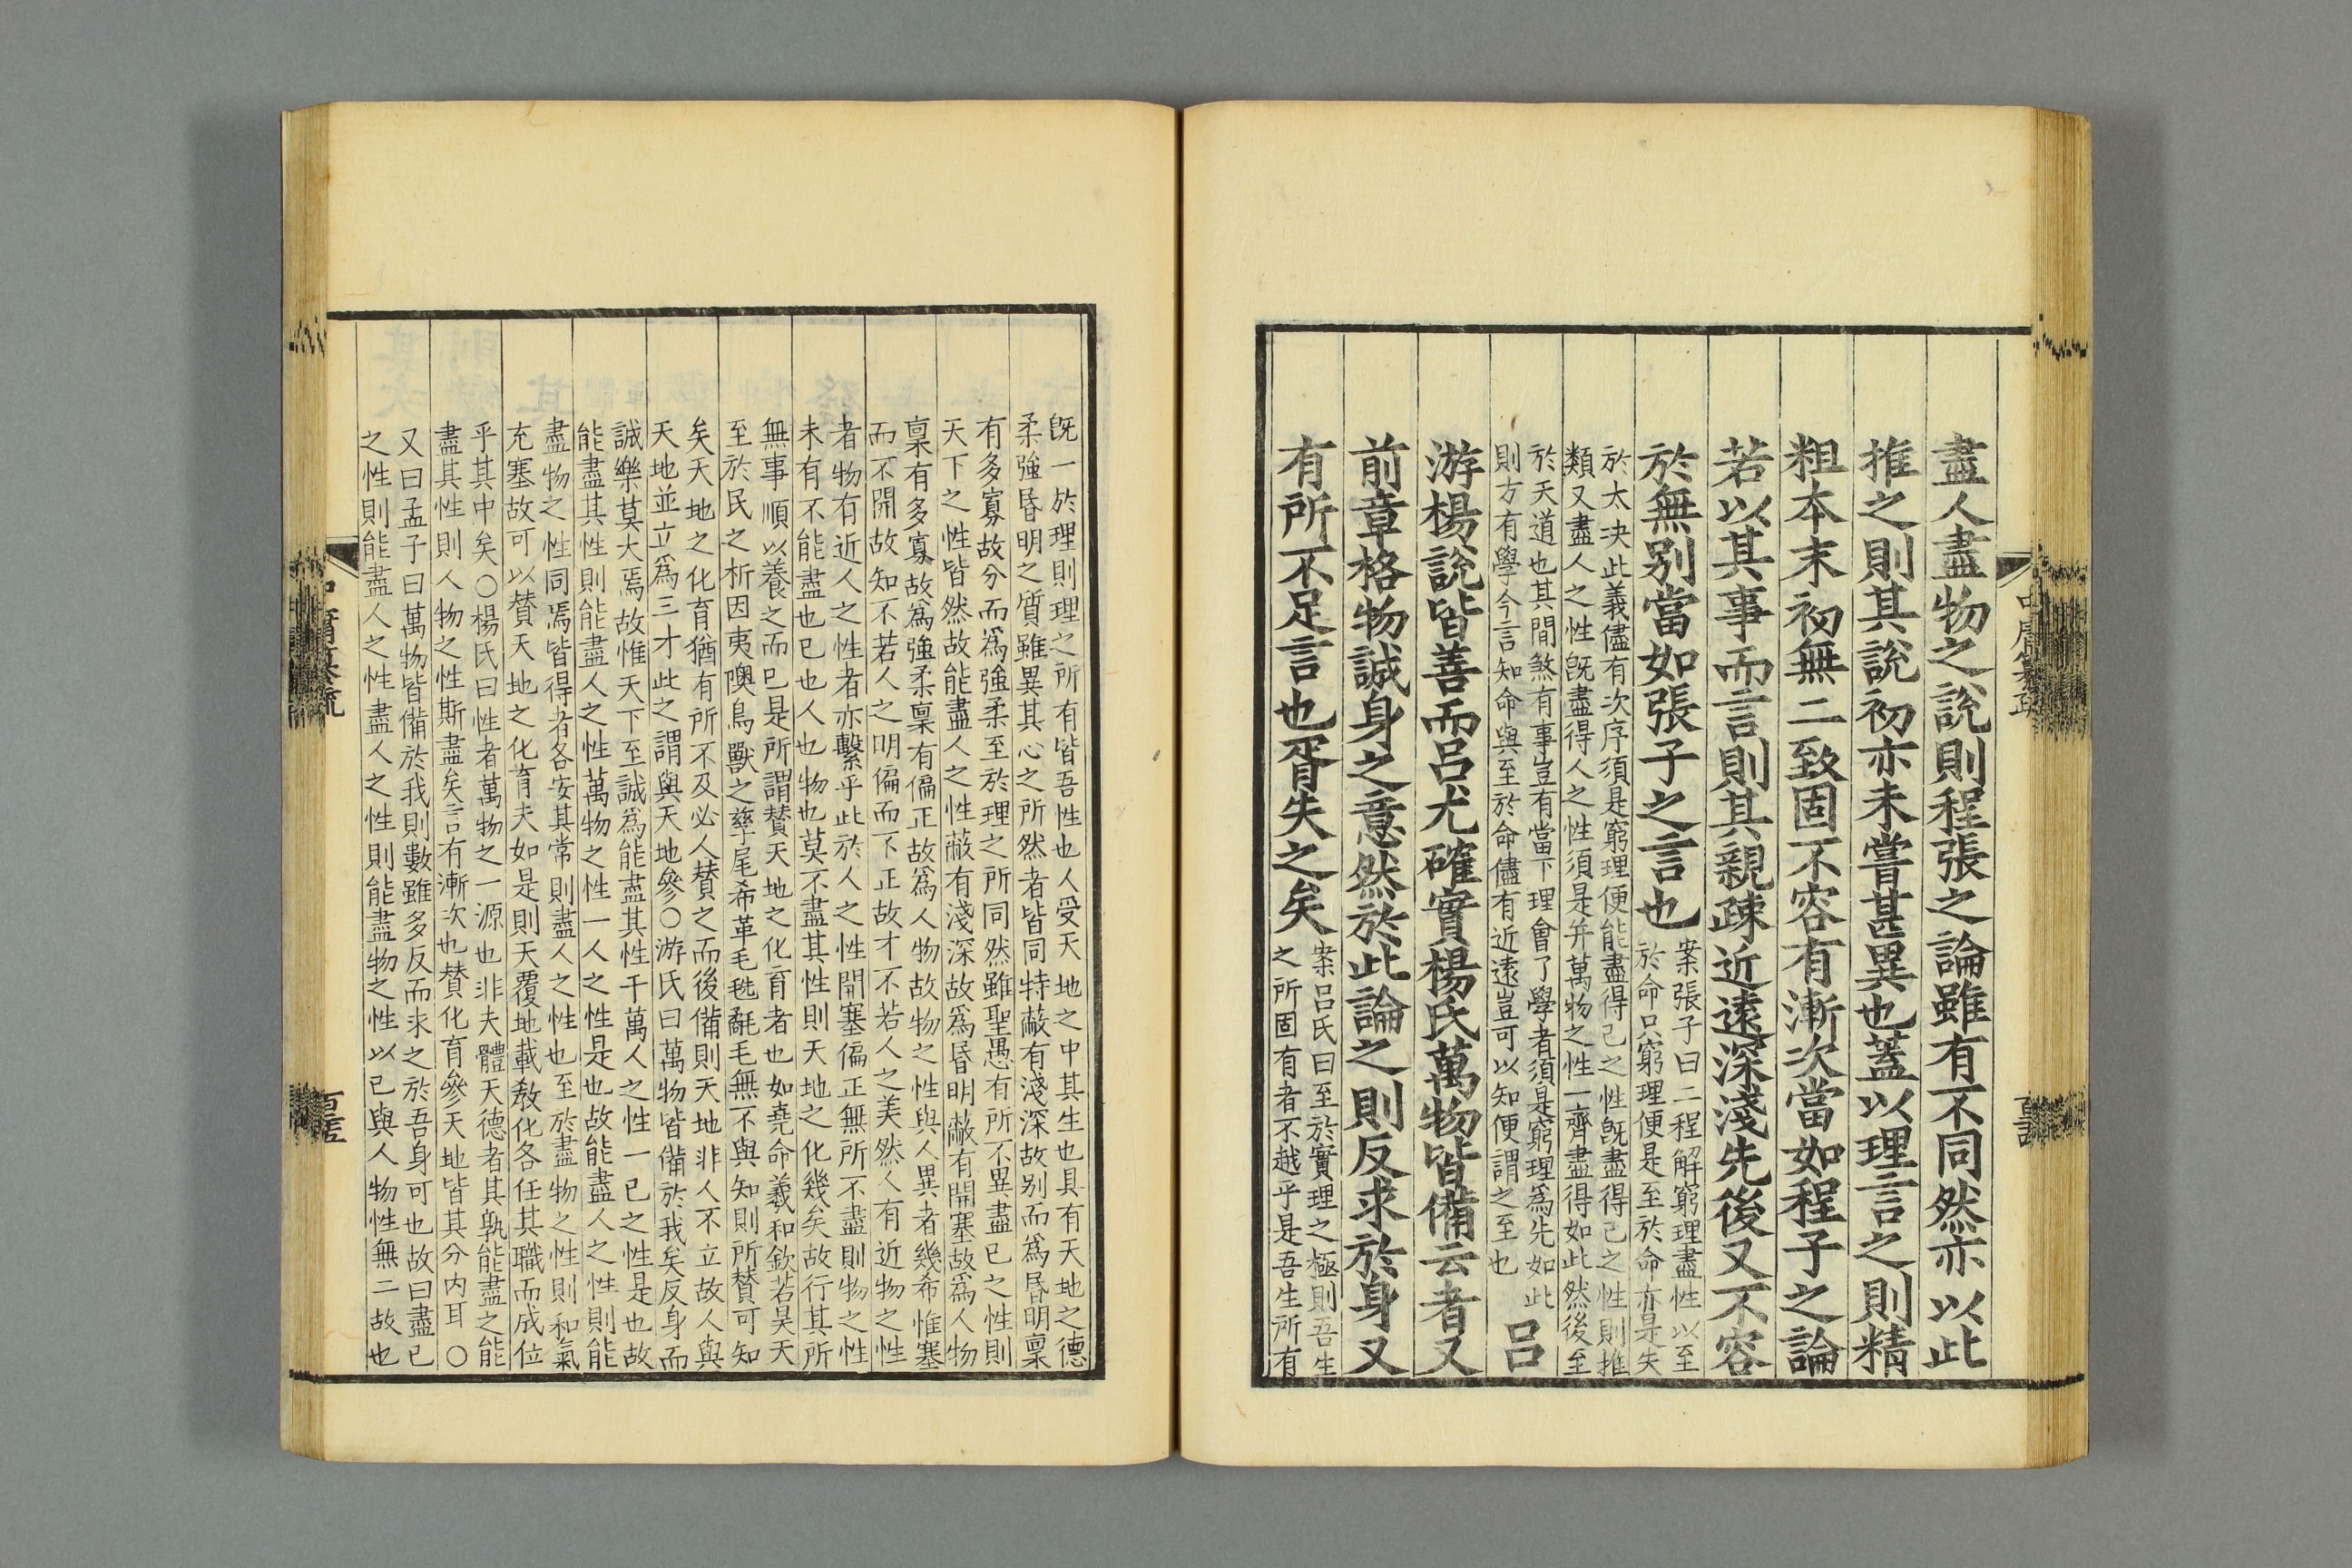 盡人盡物之説則程張之論雖有不同然亦以此
推之則其説初亦未嘗甚異也蓋以理言之則精
粗本末初無二致固不容有漸次當如程子之論
若以其事而言則其親疎近遠深淺先後又不容
於無别當如張子之言也
案張子曰二程解窮理盡性以至
於命只窮理便是至於命亦是失
於太決此義儘有次序須是窮理便能盡得己之性既盡得己之性則推
類又盡人之性既盡得人之性須是并萬物之性一齊盡得如此然後至
於天道也其間煞有事豈有當下理會了學者須是窮理爲先如此
則方有學今言知命與至於命儘有近遠豈可以知便謂之至也
吕
游楊説皆善而吕尤確實楊氏萬物皆備云者又
前章格物誠身之意然於此論之則反求於身又
有所不足言也胥失之矣
案吕氏曰至於實理之極則吾生
之所固有者不越乎是吾生所有
既一於理則理之所有皆吾性也人受天地之中其生也具有天地之德
柔強昏明之質雖異其心之所然者皆同特蔽有淺深故别而爲昏明稟
有多寡故分而爲強柔至於理之所同然雖聖愚有所不異盡已之性則
天下之性皆然故能盡人之性蔽有淺深故爲昏明蔽有開塞故爲人物
稟有多寡故爲強柔稟有偏正故爲人物故物之性與人異者幾希惟塞
而不開故知不若人之明偏而不正故才不若人之美然人有近物之性
者物有近人之性者亦繫乎此於人之性開塞偏正無所不盡則物之性
未有不能盡也已也人也物也莫不盡其性則天地之化幾矣故行其所
無事順以養之而已是所謂賛天地之化育者也如堯命羲和欽若昊天
至於民之析因夷隩鳥獸之孳尾希革毛毨氄毛無不與知則所賛可知
矣天地之化育猶有所不及必人賛之而後備則天地非人不立故人與
天地並立爲三才此之謂與天地參○游氏曰萬物皆備於我矣反身而
誠樂莫大焉故惟天下至誠爲能盡其性千萬人之性一已之性是也故
能盡其性則能盡人之性萬物之性一人之性是也故能盡人之性則能
盡物之性同焉皆得者各安其常則盡人之性也至於盡物之性則和氣
充塞故可以賛天地之化育夫如是則天覆地載敎化各任其職而成位
乎其中矣○楊氏曰性者萬物之一源也非夫體天德者其孰能盡之能
盡其性則人物之性斯盡矣言有漸次也賛化育參天地皆其分内耳○
又曰孟子曰萬物皆備於我則數雖多反而求之於吾身可也故曰盡已
之性則能盡人之性盡人之性則能盡物之性以已與人物性無二故也